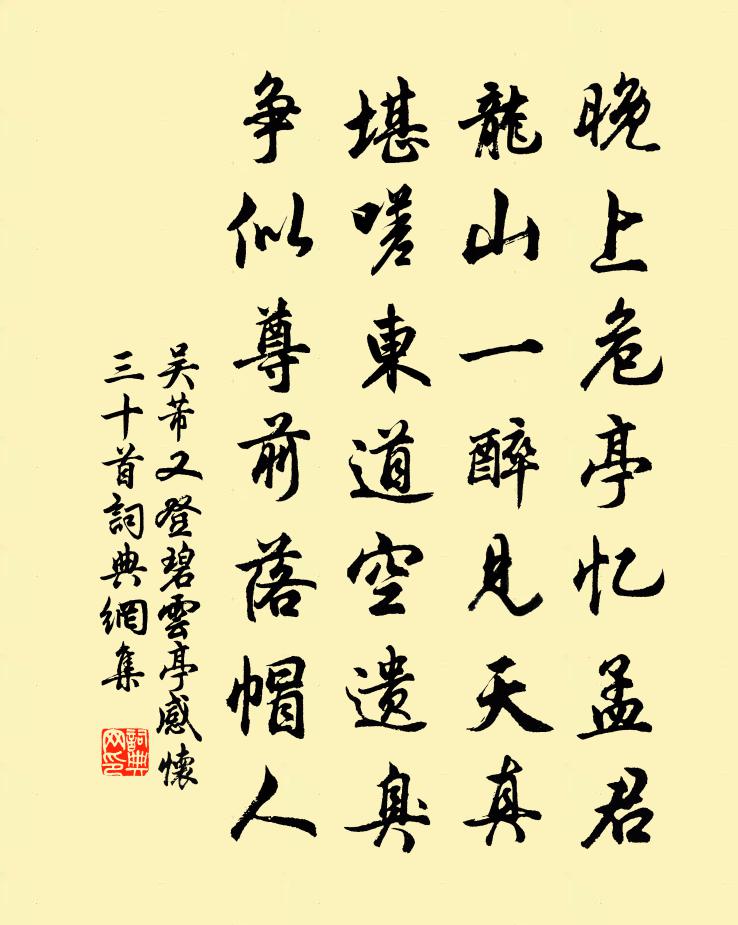 晚上危亭忆孟君
龍山一醉见天真
堪嗟東道空遗臭
争似尊前落帽人
吴芾又登碧雲亭感懷
三十首詞典網集
詞典网印